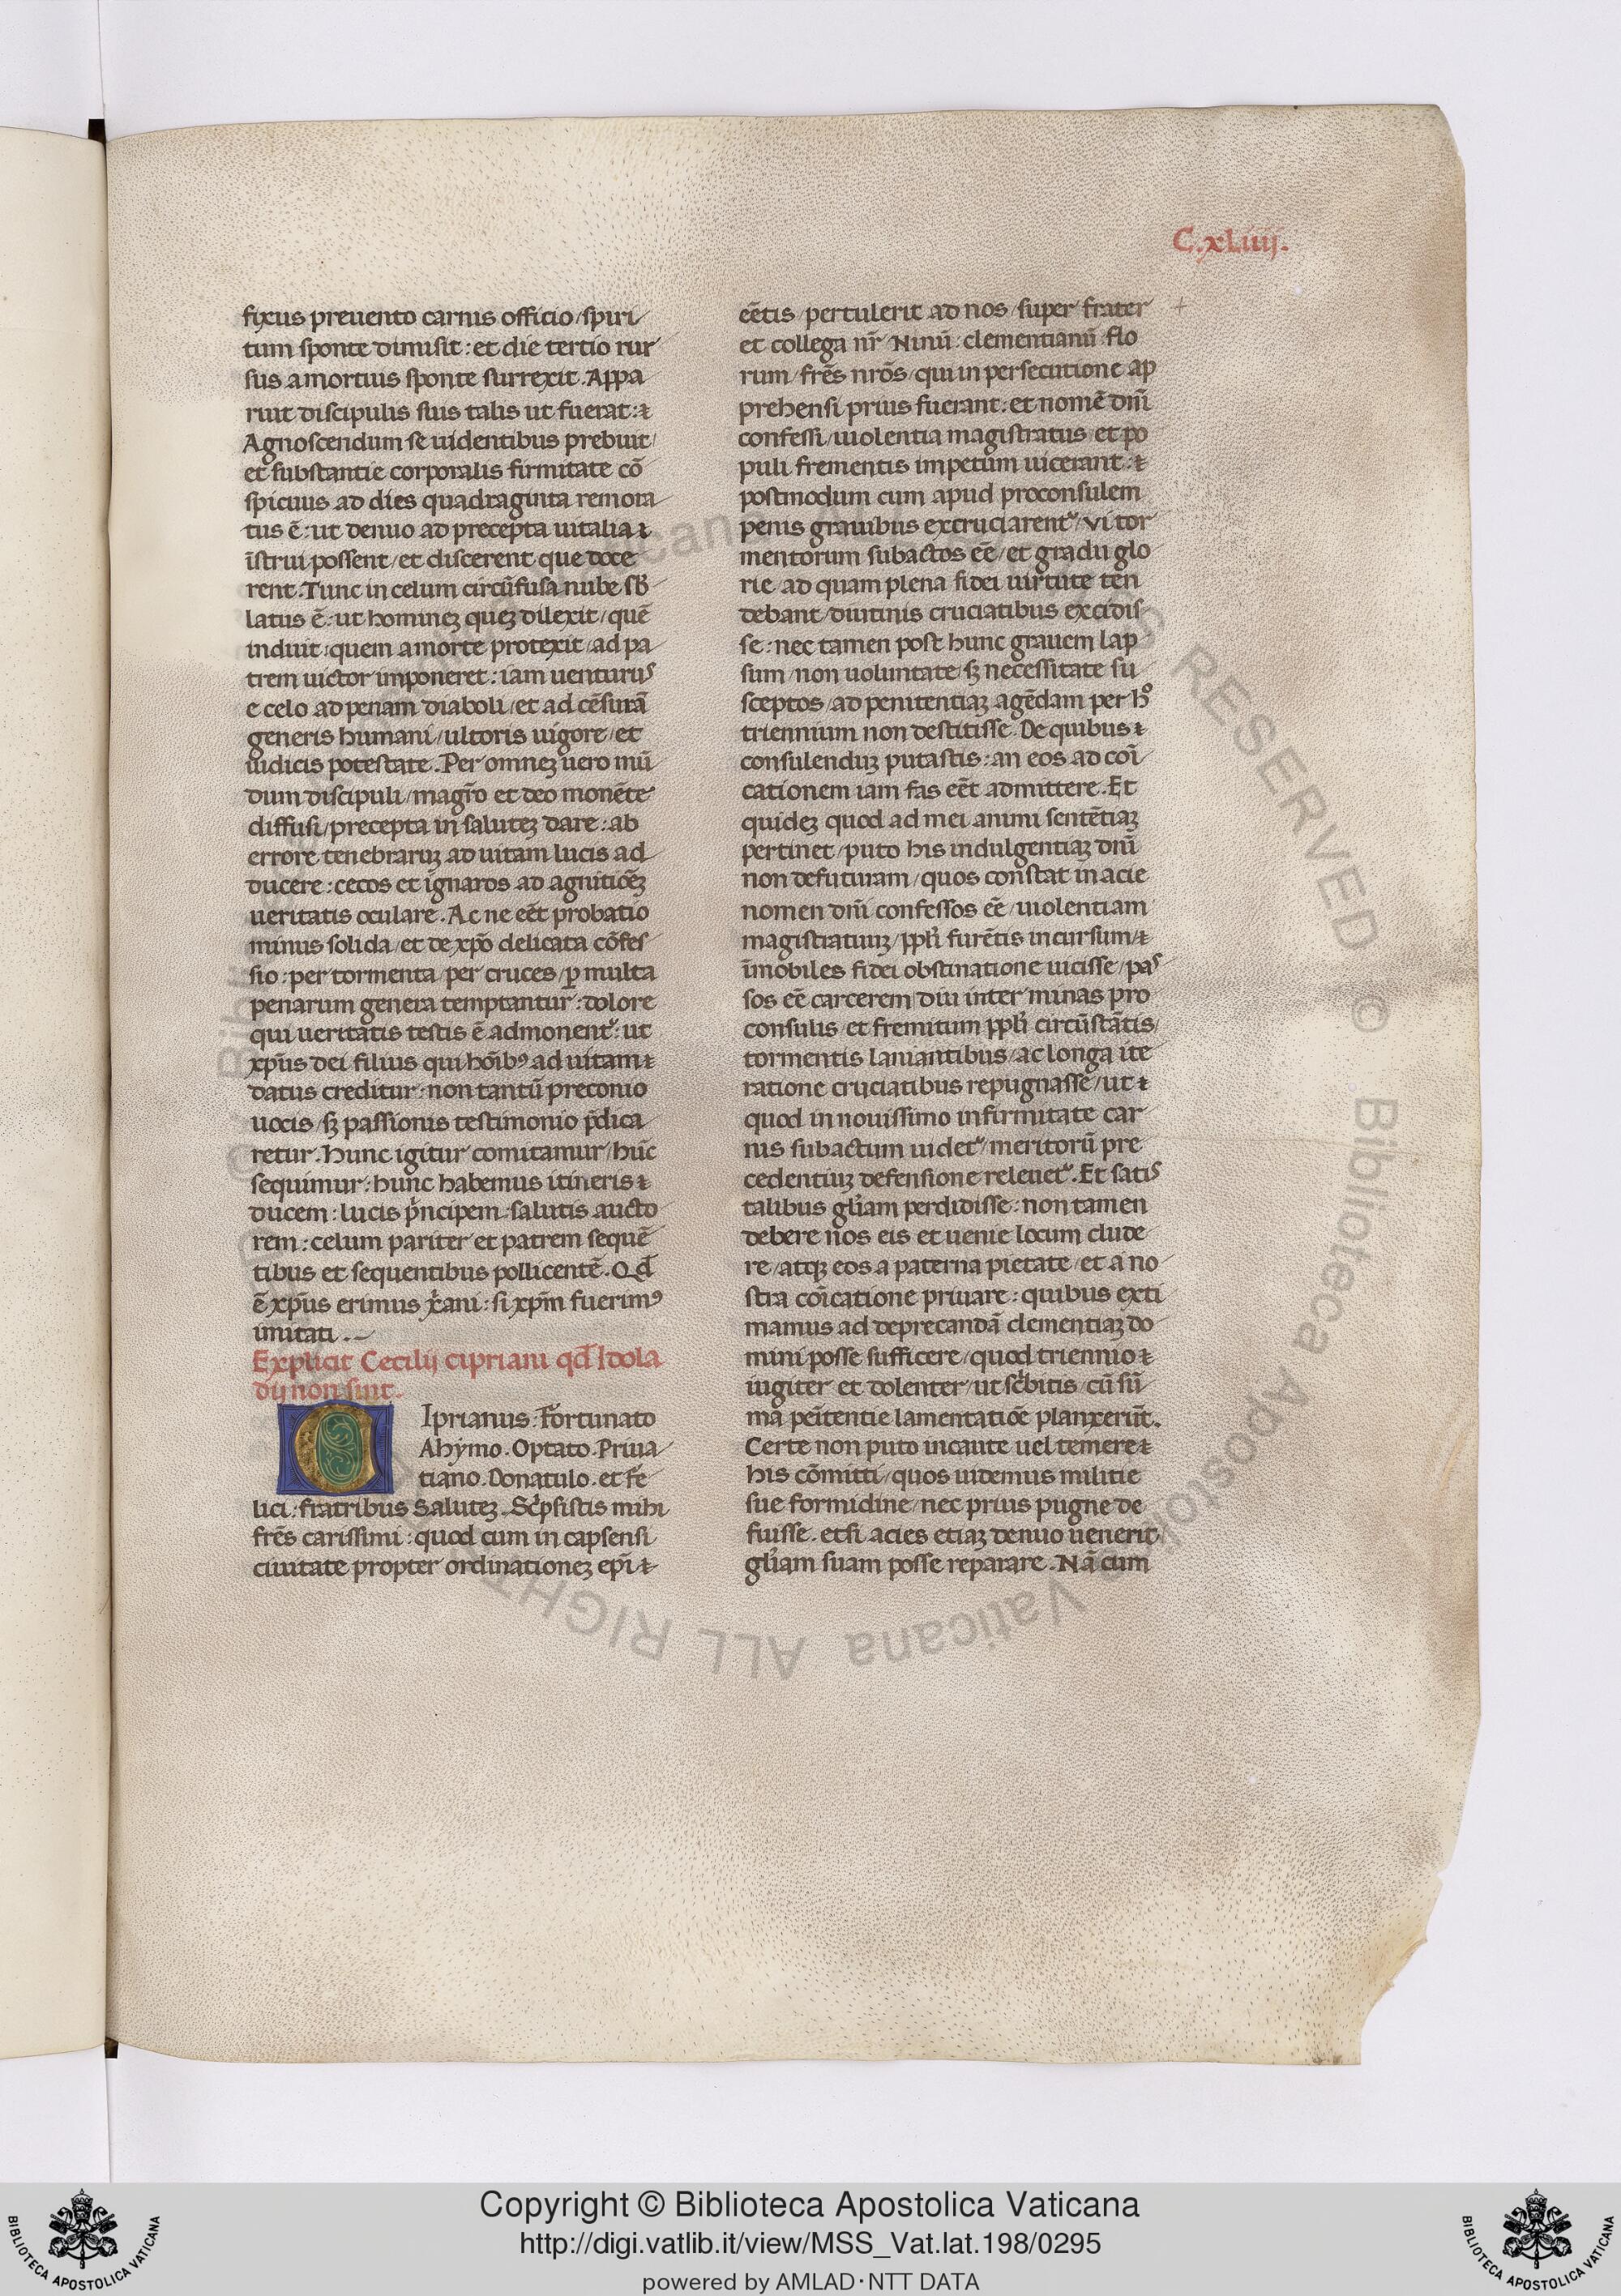 C.xLiiij.
fixus preuento carnis officio/spiri
tum sponte dimisit: et die tertio rur
sus a mortuis sponte surrexit. Appa
ruit discipulis suis talis ut fuerat: ⁊
Agnoscendum se uidentibus prebuit/
et substantie corporalis firmitate cō
spicuus ad dies quadraginta remora
tus ē: ut denuo ad precepta uitalia ⁊
īstrui possent/et discerent que doce
rent. Tunc in celum circūfusa nube sb̄
latus ē: ut homineʒ queʒ dilexit/quē
induit: quem a morte protexit/ad pa
trem uictor imponeret: iam uenturus
e celo ad penam diaboli/et ad cēsurā
generis humani/ultoris uigore/et
iudicis potestate. Per omneʒ uero mū
dum discipuli/magr̄o et deo monēte
diffusi/precepta in saluteʒ dare: ab
errore tenebraruʒ ad uitam lucis ad
ducere: cecos et ignaros ad agnitiōeʒ
ueritatis oculare. Ac ne eēt probatio
minus solida/et de xp̄o delicata cōfes
sio: per tormenta/per cruces/ꝑ multa
penarum genera temptantur: dolore
qui ueritatis testis ē admonentʳ: ut
xp̄us dei filius qui hoīb⁹ ad uitam ⁊
datus creditur: non tantū preconio
uocis/sʒ passionis testimonio p̄dica
retur. Hunc igitur comitamur/hūc
sequimur: hunc habemus itineris ⁊
ducem: lucis pⁱncipem: salutis aucto
rem: celum pariter et patrem sequē
tibus et sequentibus pollicentē. Qd̄
ē xp̄us erimus xⁱani: si xp̄m fuerim⁹
imitati.
Explicit Cecilij cipriani qd̄ Idola
dij non sint.
CIprianus. Fortunato
Ahymo. Optato. Priua
tiano. Donatulo. et fe
lici: fratribus Saluteʒ. Scⁱpsistis mihi
frēs carissimi: quod cum in capsensi
ciuitate propter ordinationeʒ epī ⁊
eētis/pertulerit ad nos/super frater
et collega nr̄ Ninū: clementianū: flo
rum/frēs nrōs/qui in persecutione ap
prehensi prius fuerant: et nomē dnī
confessi/uiolentia magistratus/et po
puli frementis impetum uicerant: ⁊
postmodum cum apud proconsulem
penis grauibus excruciarentʳ/vi tor
mentorum subactos eē/et gradu glo
rie/ad quam plena fidei uirtute ten
debant/diutinis cruciatibus excidis
se: nec tamen post hunc grauem lap
sum/non uoluntate/sʒ necessitate su
sceptos/ad penitentiaʒ agēdam per hº
triennium non destitisse. De quibus ⁊
consulenduʒ putastis: an eos ad coī
cationem iam fas eēt admittere. Et
quideʒ quod ad mei animi sentētiaʒ
pertinet/puto his indulgentiaʒ dnī
non defuturam/quos constat in acie
nomen dnī confessos eē/uiolentiam
magistratuuʒ/ppl̄i furētis incursum/⁊
īmobiles fidei obstinatione uicisse/pas
sos eē carcerem/diu inter minas pro
consulis/et fremitum ppl̄i circūstātis/
tormentis laniantibus/ac longa ite
ratione cruciatibus repugnasse/ut ⁊
quod in nouissimo infirmitate car
nis subactum uidetʳ/meritorū pre
cedentiuʒ defensione releuetʳ. Et satis
talibus gl̄iam perdidisse: non tamen
debere nos eis et uenie locum clude
re/atqʒ eos a paterna pietate/et a no
stra coīcatione priuare: quibus exti
mamus ad deprecandā clementiaʒ do
mini posse sufficere/quod triennio ⁊
iugiter et dolenter/ut scⁱbitis/cū sū
ma penītentie lamentatiōe planxerūt.
Certe non puto incaute uel temere ⁊
his cōmitti/quos uidemus militie
sue formidine/nec prius pugne de
fuisse. etsi acies etiaʒ denuo uenerit/
gl̄iam suam posse reparare. Nā cum
Copyright © Biblioteca Apostolica Vaticana
http://digi.vatlib.it/view/MSS_Vat.lat.198/0295
powered by AMLAD·NTT DATA
BIBLIOTECA APOSTOLICA VATICANA
BIBLIOTECA APOSTOLICA VATICANA